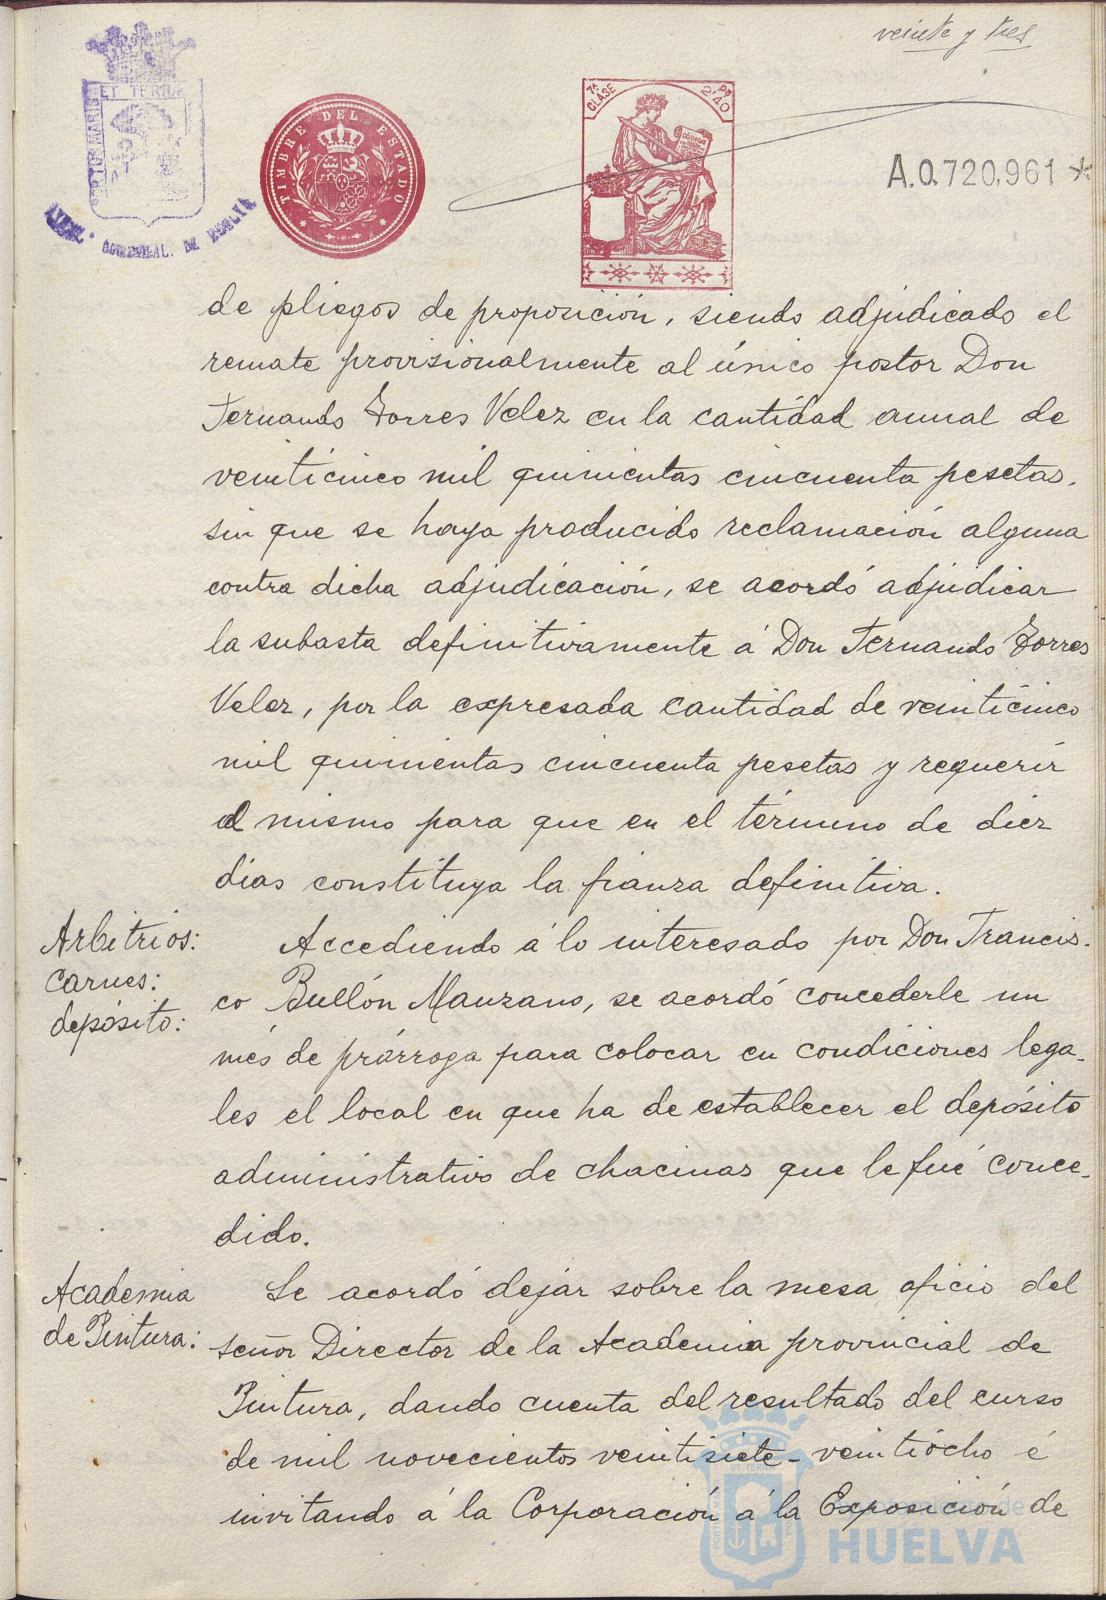 veinte y tres
PORTUS MARIS ET TERRÆ
TIMBRE DEL ESTADO
7ª CLASE
2'40 Ps
A.0.720,961 *
de pliegos de proposición, siendo adjudicado el
remate provisionalmente al único postor Don
Fernando Torres Velez en la cantidad anual de
veinticinco mil quinientas cincuenta pesetas,
sin que se haya producido reclamación alguna
contra dicha adjudicación, se acordó adjudicar
la subasta definitivamente á Don Fernando Torres
Velez, por la expresada cantidad de veinticinco
mil quinientas cincuenta pesetas y requerir
al mismo para que en el término de diez
dias constituya la fianza definitiva.
Arbitrios:
carnes:
depósito:
Accediendo á lo interesado por Don Francis-
co Bullón Manzano, se acordó concederle un
més de prórroga para colocar en condiciones lega-
les el local en que ha de establecer el depósito
administrativo de chacinas que le fué conce-
dido.
Academia
de Pintura:
Se acordó dejar sobre la mesa oficio del
señor Director de la Academia provincial de
Pintura, dando cuenta del resultado del curso
de mil novecientos veintisiete-veintiocho é
invitando á la Corporación á la Exposición de
HUELVA